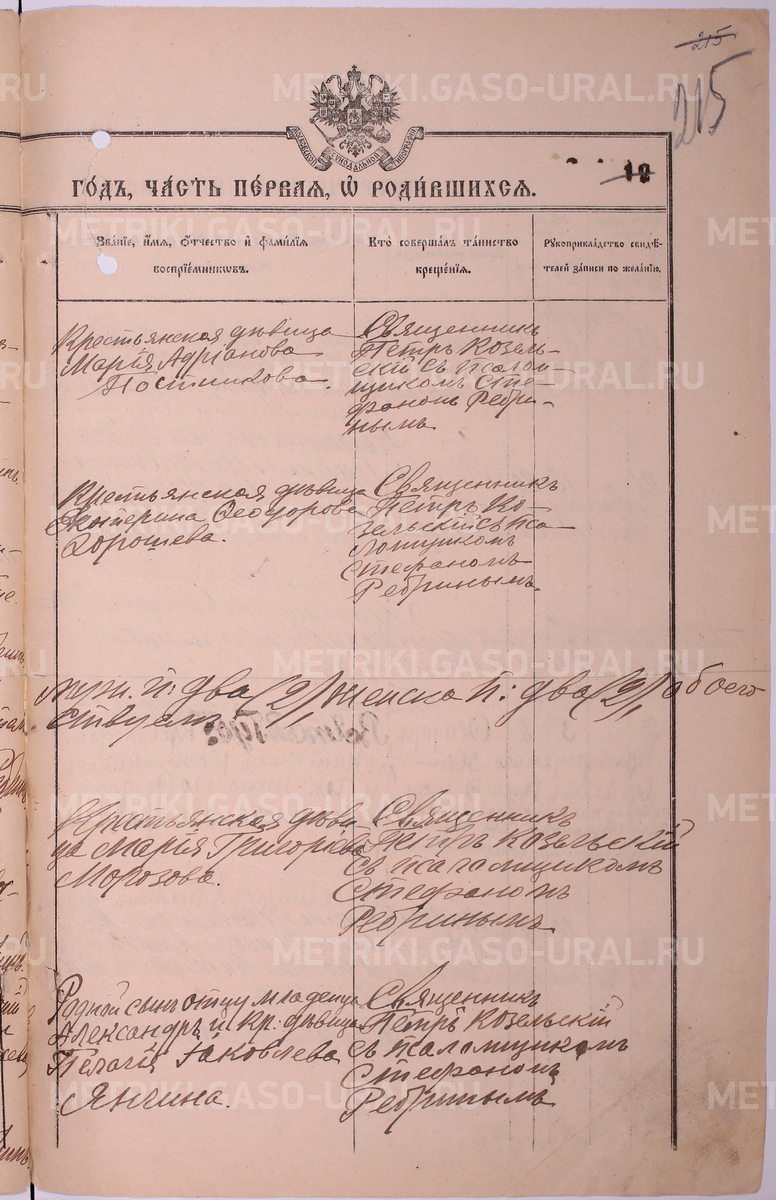 215
215
МОСКОВСКОЙ СѴНОДАЛЬНОЙ ТИПОГРАФІИ
18
ГОДЪ, ЧАСТЬ ПЕРВАЯ, Ѡ РОДИВШИХСЯ.
Званіе, имя, отчество и фамилія
воспріемниковъ.
Кто совершалъ таинство
крещенія.
Рукоприкладство свидѣ-
телей записи по желанію.
Крестьянская дѣвица
Марія Адріанова
Постникова.
Священникъ
Петръ Козель-
скій съ псалом-
щикомъ Сте-
фаномъ Ребри-
нымъ
Крестьянская дѣвица
Екатерина Ѳеодорова
Хорошева.
Священникъ
Петръ Ко-
зельскій съ пса-
ломщикомъ
Стефаномъ
Ребринымъ.
муж. п: два (2), женска п: два (2), обоего
Крестьянская дѣви-
ца Марія Григоріева
Морозова.
Священникъ
Петръ Козельскій
съ псаломщикомъ
Стефаномъ
Ребринымъ
Родной сынъ отцу младенца
Александръ и кр: дѣвица
Пелагія Іаковлева
Янчина.
Священникъ
Петръ Козельскій
съ псаломщикомъ
Стефаномъ
Ребринымъ
METRIKI.GASO-URAL.RU